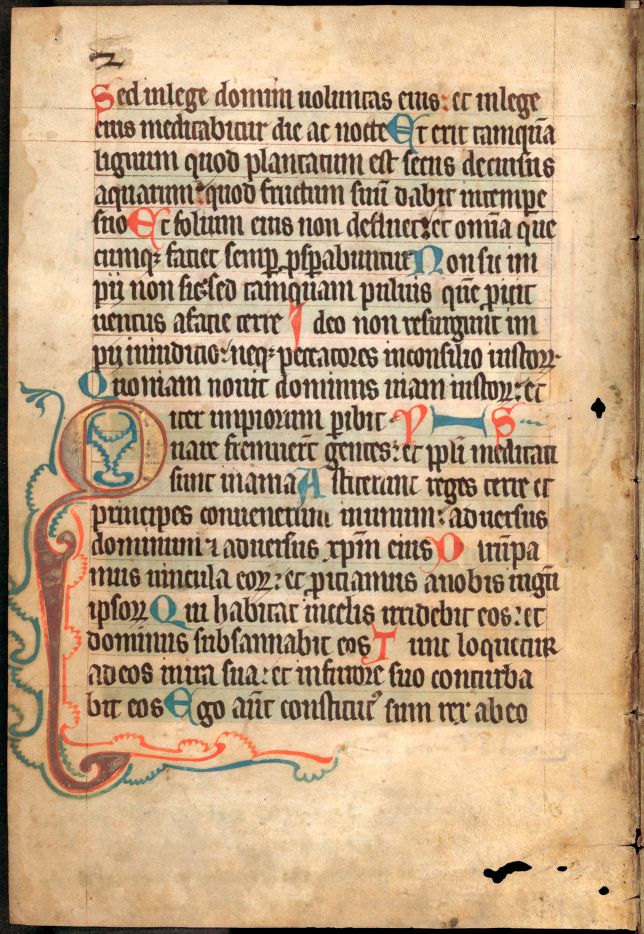 2
Sed inlege domini uoluntas eius: et inlege
eius meditabitur die ac nocte Et erit tamquā
lignum quod plantatum est secus decursus
aquarum: quod fructum suū dabit intempe
suo Et folium eius non defluet: et omīa que
cumqꝫ faciet semꝑ ꝓsꝑabuntur Non sic im
pij non sic: sed tamquam puluis quē ꝓicit
uentus afacie terre Ideo non resurgunt im
pij iniudicio: neqꝫ peccatores inconsilio iustoꝝ
Quoniam nouit dominus uiam iustoꝝ: et
iter impiorum ꝑibit PS
Quare fremuerūt gentes: et ppli meditati
sunt inania Astiterunt reges terre et
principes conuenerunt inunum: aduersus
dominum ⁊ aduersus xpm̄ eius Dirūpa
mus uincula eoꝝ: et ꝓiciamus anobis iugū
ipsoꝝ Qui habitat incelis irridebit eos: et
dominus subsannabit eos Tunc loquetur
adeos inira sua: et infurore suo conturba
bit eos Ego aūt constitutꝰ sum rex abeo